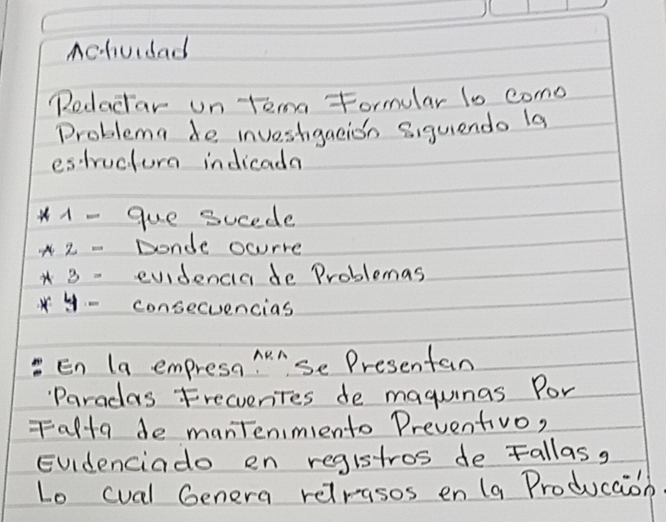 Actividad
Redactar un tema Formular lo como
Problema de investigación siguiendo la
estructura indicada
* 1 - que sucede
* 2 - Donde ocurre
* 3 - evidencia de Problemas
* 4 - consecuencias
: En la empresa "X" se Presentan
Paradas Frecuentes de maquinas Por
Falta de manTenimiento Preventivo,
Evidenciado en registros de Fallas,
Lo cual Genera retrasos en la Producción.